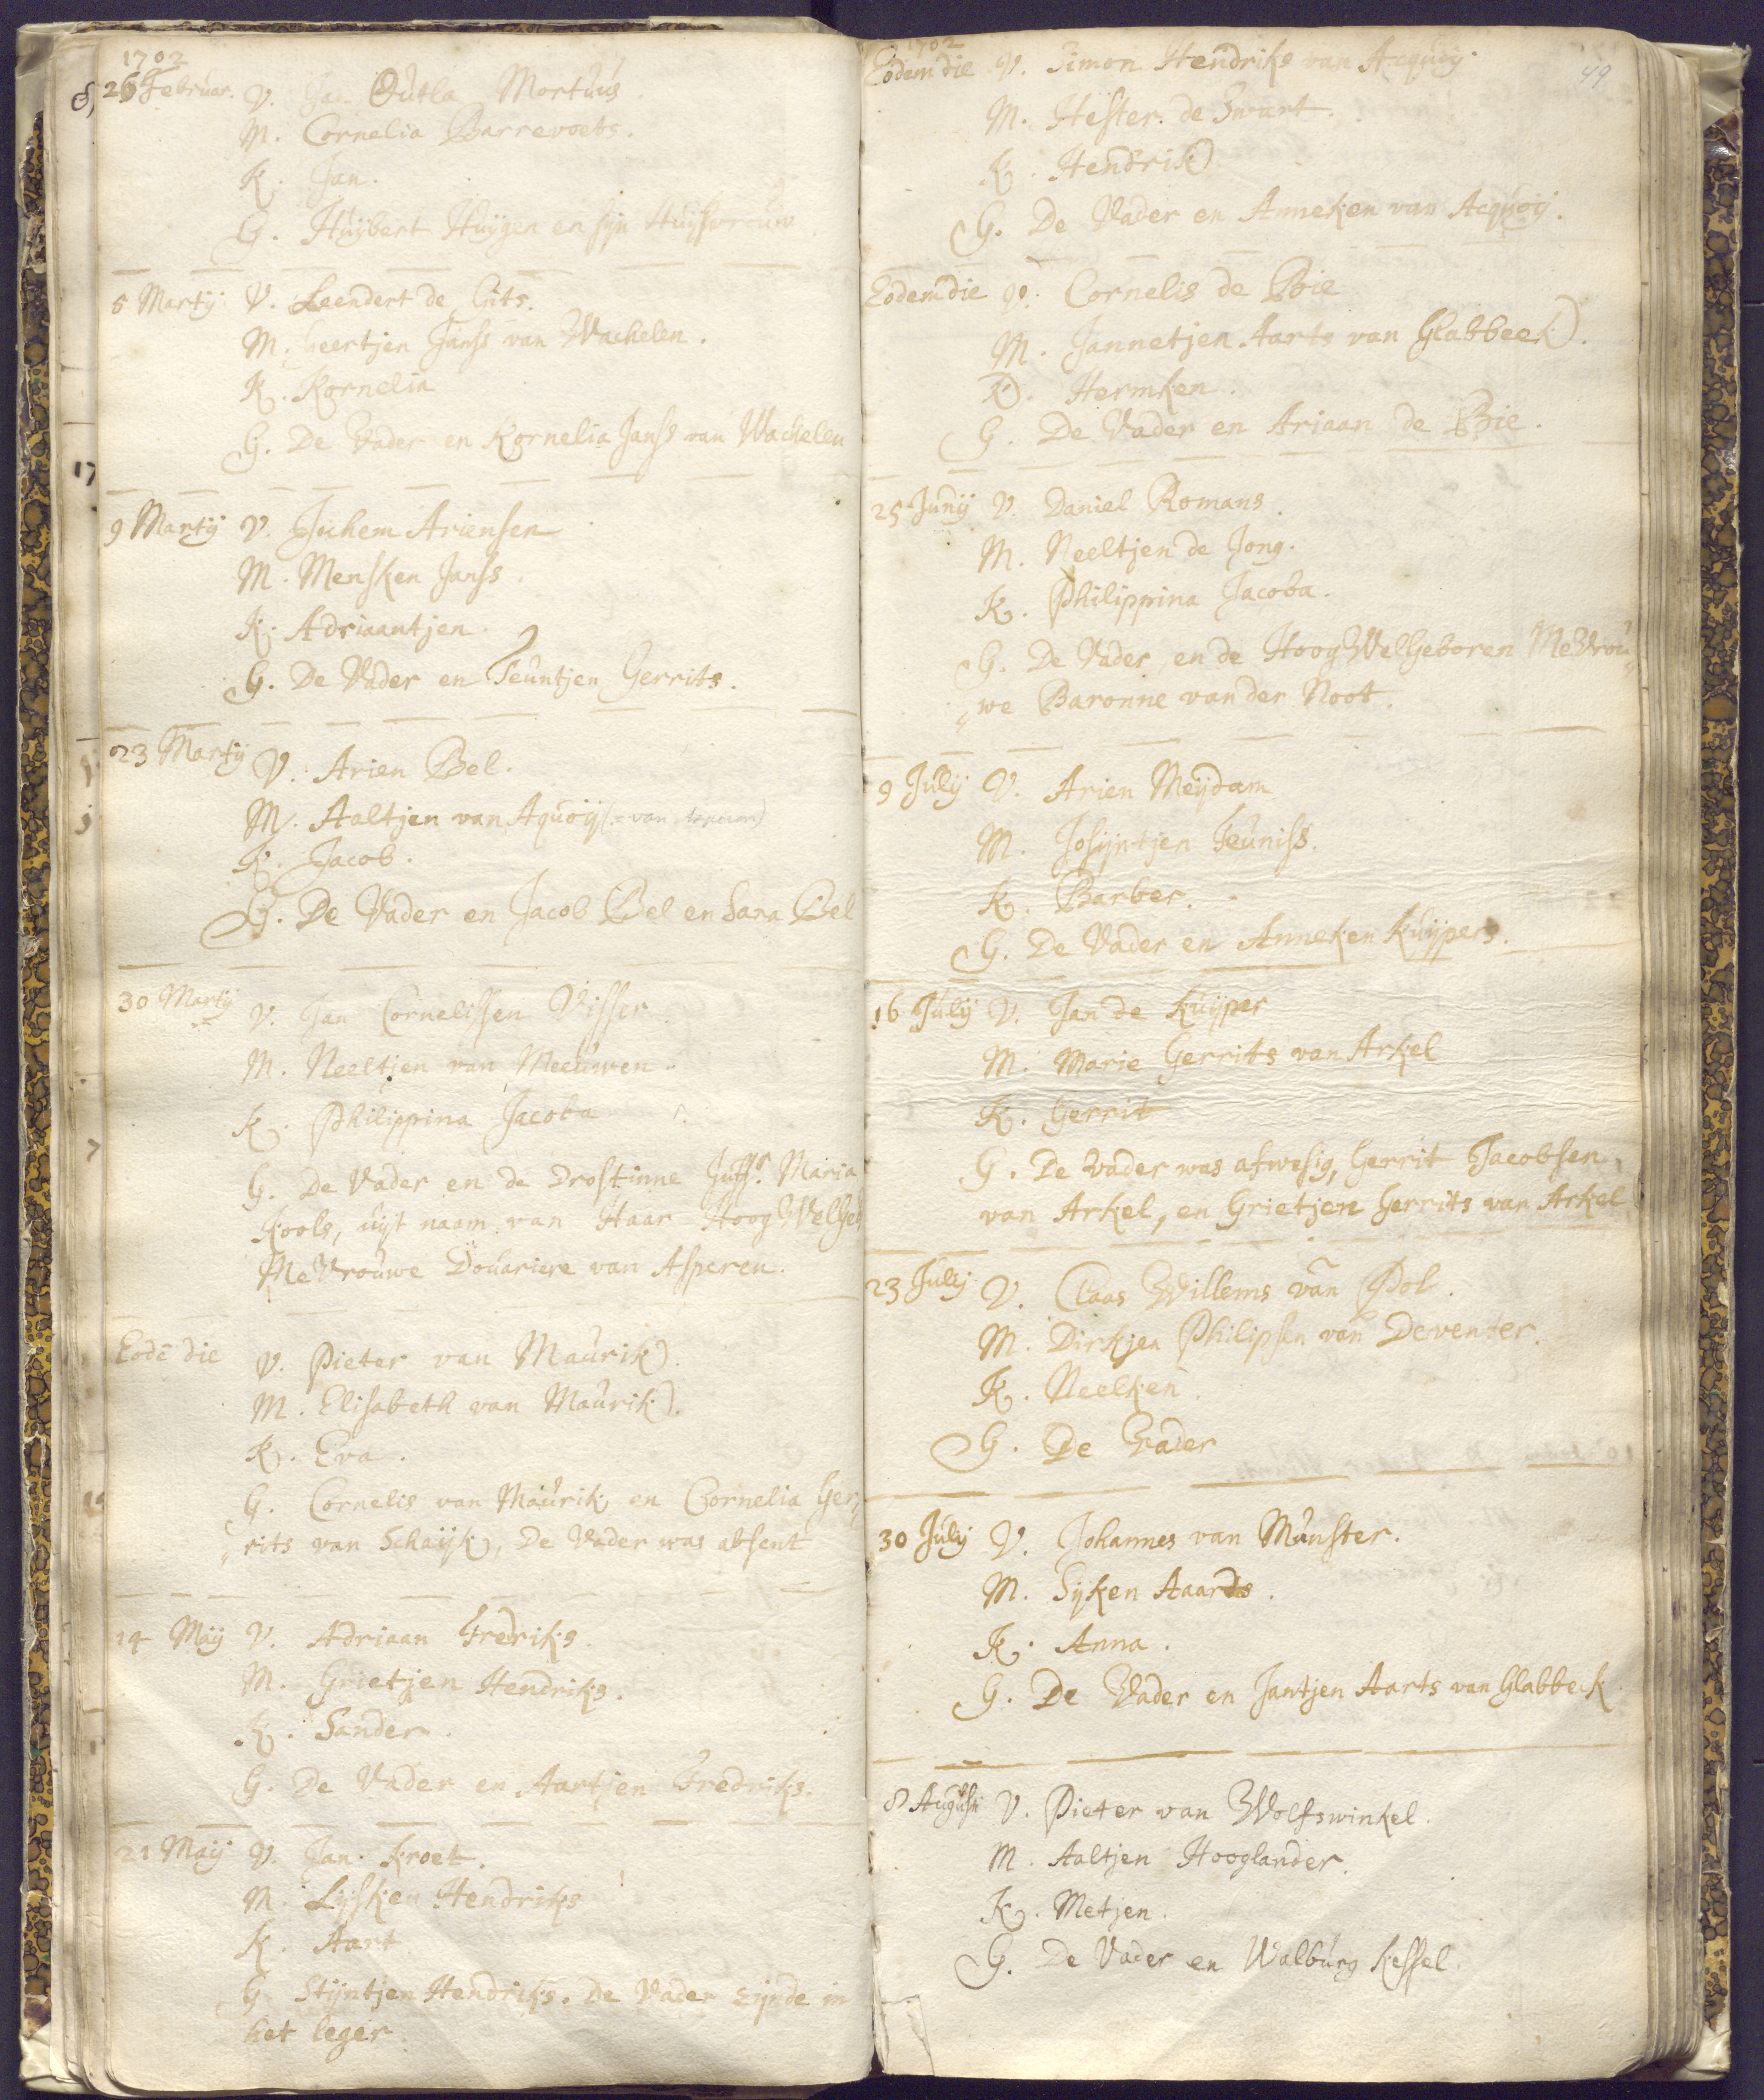 1702
26 Februar. V. Jan Outla Mortuus.
M. Cornelia Barrevoets.
K. Jan.
G. Huijbert Huijgen en sijn Huijsvrouw.
5 Martij V. Leendert de Cits.
M. Geertjen Janss van Wachelen.
K. Kornelia
G. De Vader en Kornelia Janss van Wachelen
9 Martij V. Jochem Ariensen
M. Mensken Janss.
K. Adriaantjen.
G. De Vader en Teuntjen Gerrits.
23 Martij V. Arien Bel.
M. Aaltjen van Aquoij
K. Jacob.
G. De Vader en Jacob Bel en Sara Bel
30 Martij V. Jan Cornelissen Visser.
M. Neeltjen van Meeuwen.
K. Philippina Jacoba
G. De Vader en de Drostinne Juffr. Maria
Kools, uijt naam van Haar Hoog WelGeb
MeVrouwe Douariere van Asperen.
Eodē die V. Pieter van Maurik.
M. Elisabeth van Maurik.
K. Eva.
G. Cornelis van Maurik en Cornelia Ger„
„rits van Schaijk, De Vader was absent
14 Maij V. Adriaan Fredriks.
M. Grietjen Hendriks.
K. Sander.
G. De Vader en Aartjen Fredriks.
21 Maij V. Jan Kroet.
M. Lijsken Hendriks
K. Aart
G. Stijntjen Hendriks. De Vader zijnde in
het leger.
1702
49
Eodem die V. Simon Hendriks van Acquoij.
M. Hester de Swart.
K. Hendrik
G. De Vader en Anneken van Acquoij.
Eodem die V. Cornelis de Bie
M. Jannetjen Aarts van Glabbeek.
K. Hermken.
G. De Vader en Ariaan de Bie.
25 Junij V. Daniel Romans.
M. Neeltjen de Jong.
K. Philippina Jacoba.
G. De Vader en de Hoog WelGeboren MeVrou„
„we Baronne van der Noot.
9 Julij V. Arien Meijdam
M. Josijntjen Teuniss.
K. Barber.
G. De Vader en Anneken Kuijpers.
16 Julij V. Jan de Kuijper
M. Marie Gerrits van Arkel
K. Gerrit
G. De vader was afwesig, Gerrit Jacobsen
van Arkel, en Grietjen Gerrits van Arkel
23 Julij V. Claas Willems van Pol.
M. Dirkjen Philipsen van Deventer.
K. Neelken.
G. De Vader
30 Julij V. Johannes van Munster.
M. Sijken Aaards.
K. Anna.
G. De Vader en Jantjen Aarts van Glabbeek
8 Augusti V. Pieter van Wolfswinkel.
M. Aaltjen Hooglander.
K. Metjen.
G. De Vader en Walburg Kessel.